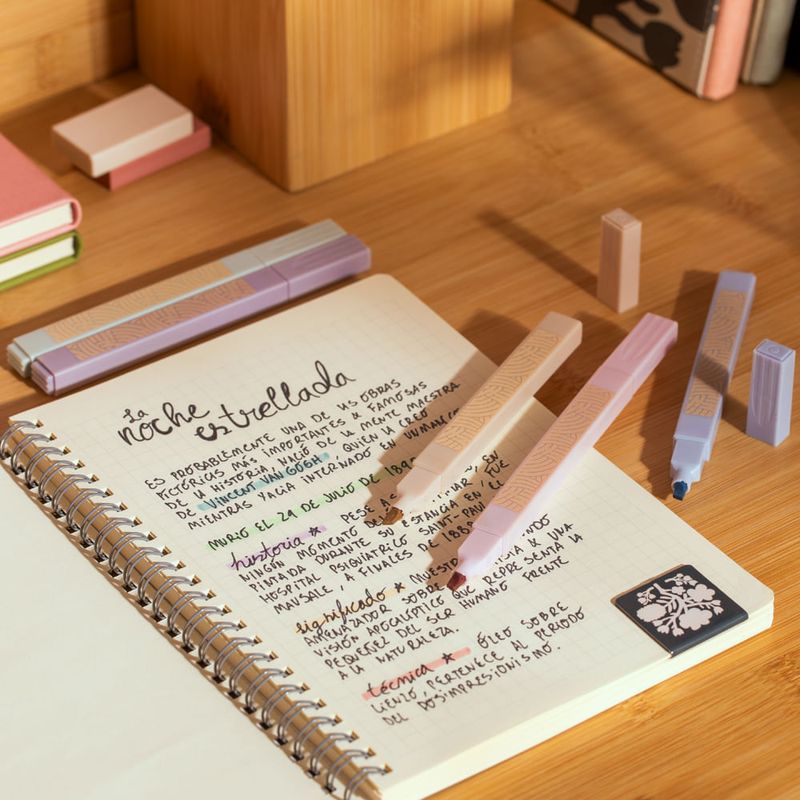 La
noche estrellada
ES PROBABLEMENTE UNA DE US OBRAS
PICTÓRICAS MÁS IMPORTANTES & FAMOSAS
DE LA HISTORIA, NACIÓ DE LA MENTE MAESTRA
DE VINCENT VAN GOGH, QUIEN LA CREÓ
MIENTRAS YACÍA INTERNADO EN UN MANICO
MURIÓ EL 29 DE JULIO DE 1890
historia ★ PESE A EN
NINGÚN MOMENTO DE FUE
PINTADA DURANTE SU ESTANCIA EN EL
HOSPITAL PSIQUIÁTRICO SAINT-PAUL
MAUSALE, A FINALES DE 1889
significado ★ MUESTRA
AMENAZADOR SOBRE & UNA
VISIÓN APOCALÍPTICO QUE REPRESENTA LA
PEQUEÑEZ DEL SER HUMANO FRENTE
A LA NATURALEZA.
técnica ★ ÓLEO SOBRE
LIENZO, PERTENECE AL PERIODO
DEL POSIMPRESIONISMO.